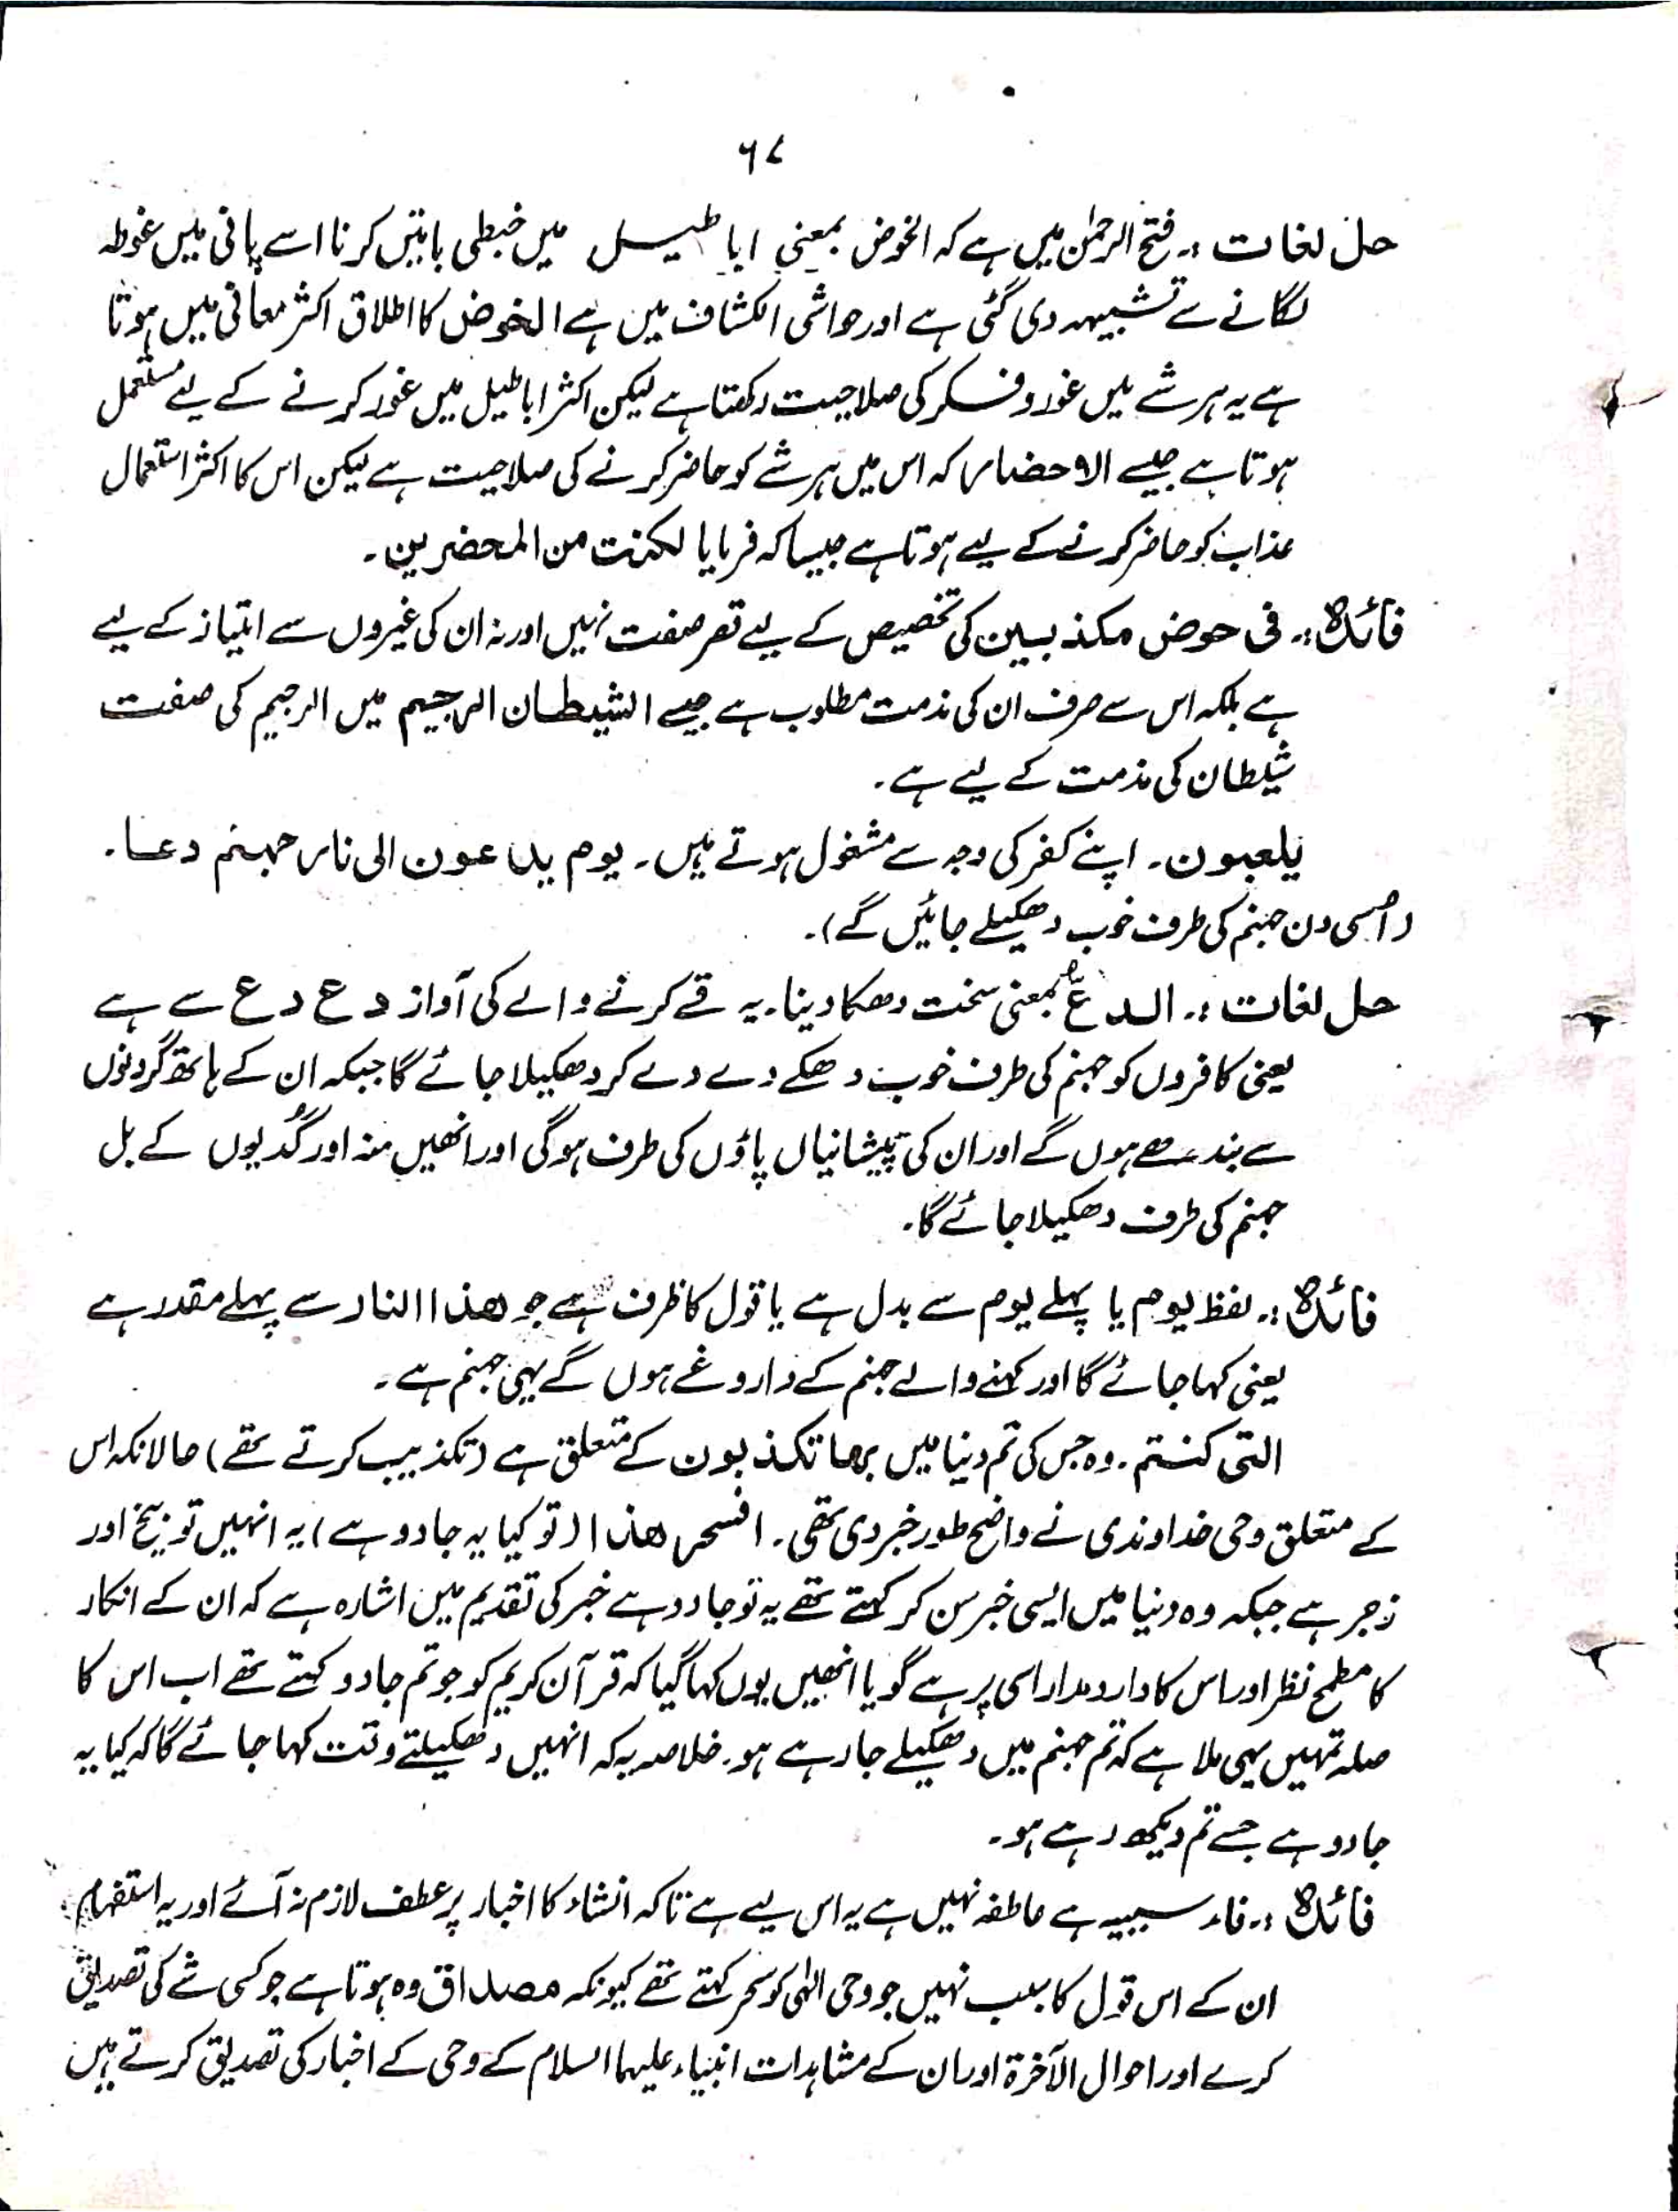 ۶۷
حل لغات :۔ فتح الرحمٰن میں ہے کہ الخوض بمعنی اباطیل میں خبطی باتیں کرنا اسے پانی میں غوطہ
لگانے سے تشبیہہ دی گئی ہے اور حواشی الکشاف میں ہے الخوض کا اطلاق اکثر معانی میں ہوتا
ہے یہ ہر شے میں غور و فکر کی صلاحیت رکھتا ہے لیکن اکثر اباطیل میں غور کرنے کے لیے مستعمل
ہوتا ہے جیسے الاحضار کہ اس میں ہر شے کو حاضر کرنے کی صلاحیت ہے لیکن اس کا اکثر استعمال
عذاب کو حاضر کرنے کے لیے ہوتا ہے جیسا کہ فرمایا لکنت من المحضرین۔
فائدہ :۔ فی حوض مکذبین کی تخصیص کے لیے قصر صفت نہیں اور نہ ان کی غیروں سے امتیاز کے لیے
ہے بلکہ اس سے صرف ان کی مذمت مطلوب ہے جیسے الشیطان الرجیم میں الرجیم کی صفت
شیطان کی مذمت کے لیے ہے۔
یلعبون۔ اپنے کفر کی وجہ سے مشغول ہوتے ہیں۔ یوم یدعون الی نار جہنم دعا۔
(اسی دن جہنم کی طرف خوب دھکیلے جائیں گے)۔
حل لغات :۔ الدعّ بمعنی سخت دھکا دینا۔ یہ قے کرنے والے کی آواز دع دع سے ہے
یعنی کافروں کو جہنم کی طرف خوب دھکے دے دے کر دھکیلا جائے گا جبکہ ان کے ہاتھ گردنوں
سے بندھے ہوں گے اور ان کی پیشانیاں پاؤں کی طرف ہوگی اور انھیں منہ اور گُدیوں کے بل
جہنم کی طرف دھکیلا جائے گا۔
فائدہ :۔ لفظ یوم یا پہلے یوم سے بدل ہے یا قول کا ظرف ہے جو ھذا النار سے پہلے مقدر ہے
یعنی کہا جائے گا اور کہنے والے جہنم کے داروغے ہوں گے یہی جہنم ہے۔
التی کنتم۔ وہ جس کی تم دنیا میں بھا تکذبون کے متعلق ہے (تکذیب کرتے تھے) حالانکہ اس
کے متعلق وحی خداوندی نے واضح طور خبر دی تھی۔ افسحر ھذا (تو کیا یہ جادو ہے) یہ انہیں توبیخ اور
زجر ہے جبکہ وہ دنیا میں ایسی خبر سن کر کہتے تھے یہ تو جادو ہے خبر کی تقدیم میں اشارہ ہے کہ ان کے انکار
کا مطمح نظر اور اس کا دارومدار اسی پر ہے گویا انھیں یوں کہا گیا کہ قرآن کریم کو جو تم جادو کہتے تھے اب اس کا
صلہ تمہیں یہی ملا ہے کہ تم جہنم میں دھکیلے جا رہے ہو۔ خلاصہ یہ کہ انہیں دھکیلتے وقت کہا جائے گا کہ کیا یہ
جادو ہے جسے تم دیکھ رہے ہو۔
فائدہ :۔ فاء سببیہ ہے عاطفہ نہیں ہے یہ اس لیے ہے تاکہ انشاء کا اخبار پر عطف لازم نہ آئے اور یہ استفہام
ان کے اس قول کا سبب نہیں جو وحی الٰہی کو سحر کہتے تھے کیونکہ مصداق وہ ہوتا ہے جو کسی شے کی تصدیق
کرے اور احوال الآخرۃ اور ان کے مشاہدات انبیاء علیہم السلام کے وحی کے اخبار کی تصدیق کرتے ہیں